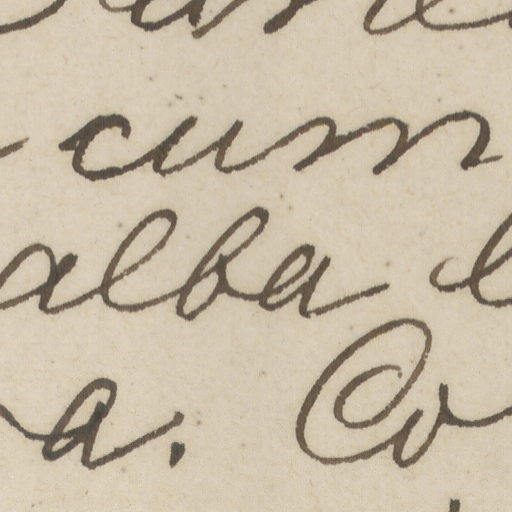 cum
alba
a. Co